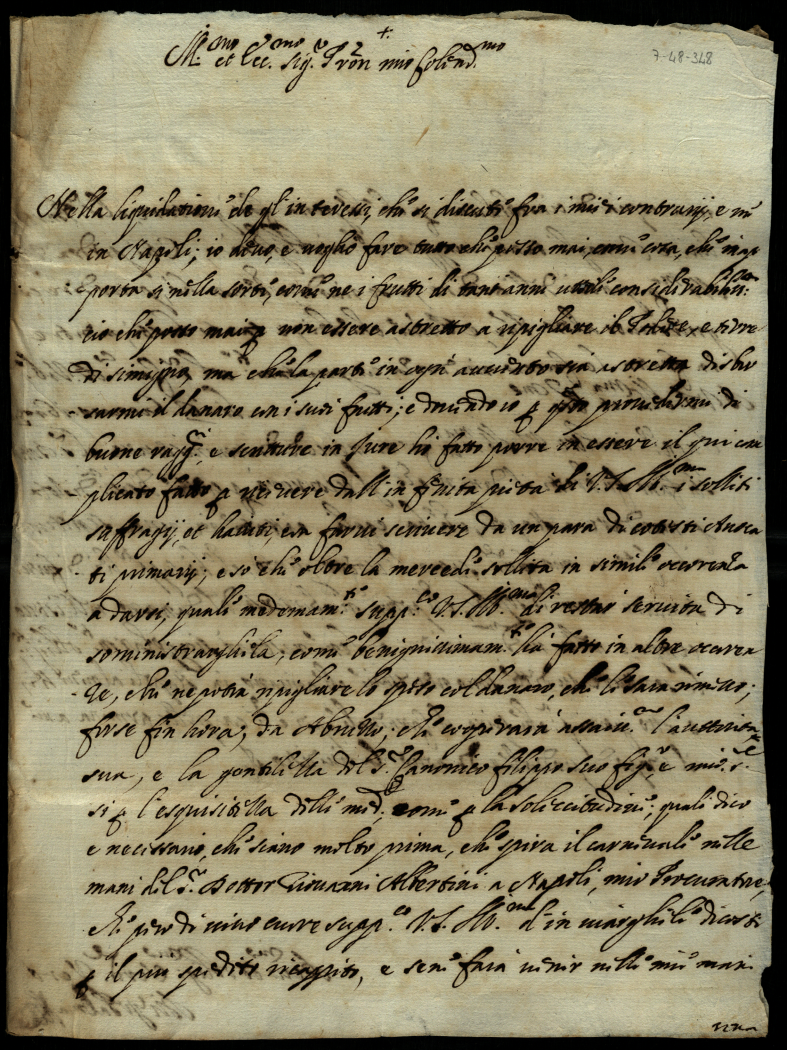 +
Ill.mo et Ecc.mo Sig.r Pron mio Colend.mo
7-48-348
Nella liquidatione de gl'interessi, che si discute fra i miei contrarij, e me
in Napoli; io devo, e voglio fare tutto che posso mai, come cosa, che im
porta si nella sorte, come ne i frutti di tant'anni utile considerabiliss.mo
cio che posso mai p non essere astretto a ripigliare il
di ma che la parte in ogni sia astretta disbor
sarmi il danaro con i suoi frutti; e dovendo io p q.to provedermi di
buone ragg.i, e scritture in Jure hò fatto porre in essere il qui con
plicato fatto p ricevere dall'infinita pietà di V.S. Ill.ma i soliti
suffragij, et havuti, essa farvi scrivere da un para di cotesti Avoca
ti primarij; e so che oltre la mercede solita in simile occorrenza
a darsi, quale medemam.te supp.co V.S. Ill.ma di restar servita di
somministrarghila, come benignissimam.te hà fatto in altre occoren
ze, che ne potrà ripigliare lo speso col danaro, che li sarà rimesso;
forse fin hora, da Abruzzo, che coopererà assaiss.mo l'auttorità
sua, e la gentilezza del S.r Canonico Filippo suo fig.e, e mio S.re
si p l'esquisitezza delli med.i, come p la sollecitudine, quali dico
e necessario, che siano molto prima, che spira il carnevale nelle
mani del S.r Dottor Giovanni Albertini a Napoli, mio Procuratore,
che perciò di vivo cuore supp.co V.S. Ill.ma d'inviarghile di costì
p il più spedito ricapito, e se ne farà venir nelle mie mani